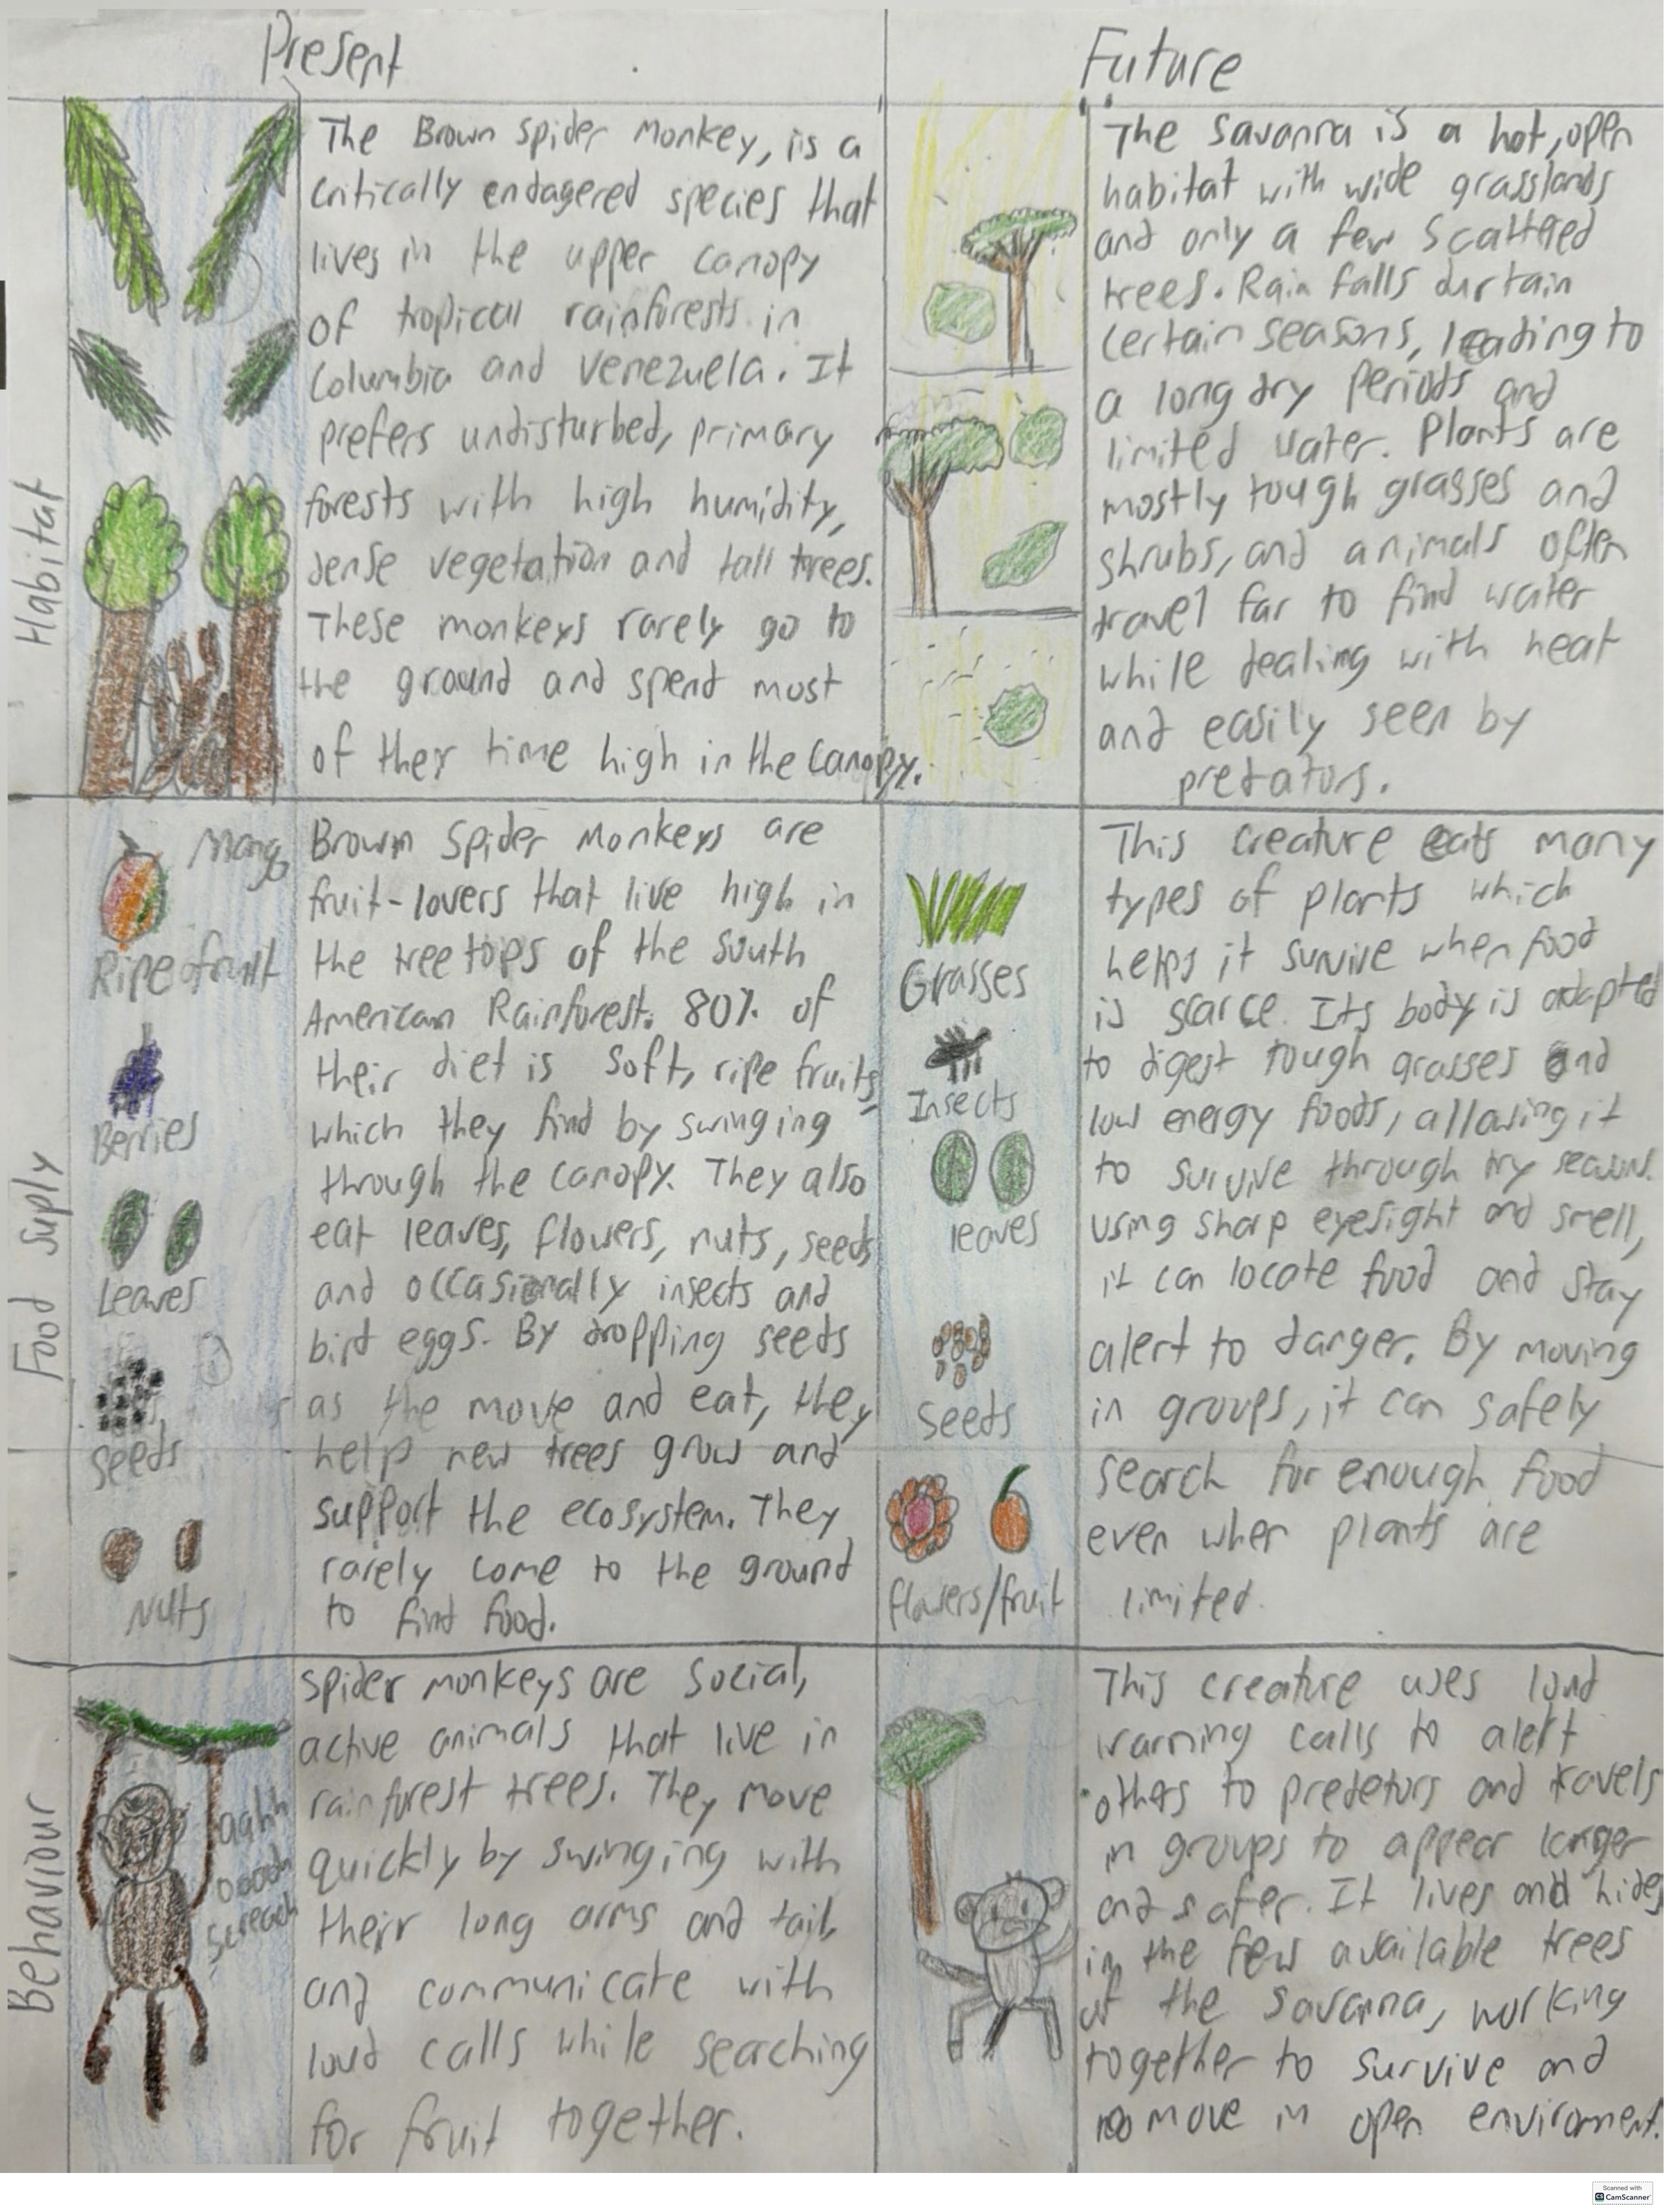 Present
Future
Habitat
The Brown Spider Monkey, is a
critically endagered species that
lives in the upper canopy
of tropical rainforests in
Columbia and Venezuela. It
prefers undisturbed, primary
forests with high humidity,
dense vegetation and tall trees.
These monkeys rarely go to
the ground and spend most
of their time high in the canopy.
The Savanna is a hot, open
habitat with wide grasslands
and only a few scattered
trees. Rain falls durtain
certain seasons, leading to
a long dry periods and
limited water. Plants are
mostly tough grasses and
shrubs, and animals often
travel far to find water
while dealing with heat
and easily seen by
predators.
Food suply
Mango
Ripe fruit
Berries
Leaves
Seeds
Nuts
Brown Spider Monkeys are
fruit-lovers that live high in
the tree tops of the south
American Rainforest. 80% of
their diet is soft, ripe fruits,
which they find by swinging
through the canopy. They also
eat leaves, flowers, nuts, seeds
and occasionally insects and
bird eggs. By dropping seeds
as the move and eat, they
help new trees grow and
support the ecosystem. They
rarely come to the ground
to find food.
Grasses
Insects
leaves
Seeds
flowers/fruit
This creature eats many
types of plants which
helps it survive when food
is scarce. Its body is adapted
to digest tough grasses and
low energy foods, allowing it
to survive through dry seasons.
using sharp eyesight and smell,
it can locate food and stay
alert to danger. By moving
in groups, it can safely
search for enough food
even when plants are
limited.
Behaviour
aahh
ooooh
screech
Spider monkeys are social,
active animals that live in
rainforest trees. They move
quickly by swinging with
their long arms and tail,
and communicate with
loud calls while searching
for fruit together.
This creature uses loud
warning calls to alert
others to predetors and travels
in groups to appear larger
and safer. It lives and hides
in the few available trees
of the savanna, working
together to survive and
move in open enviroment.
Scanned with
CS CamScanner